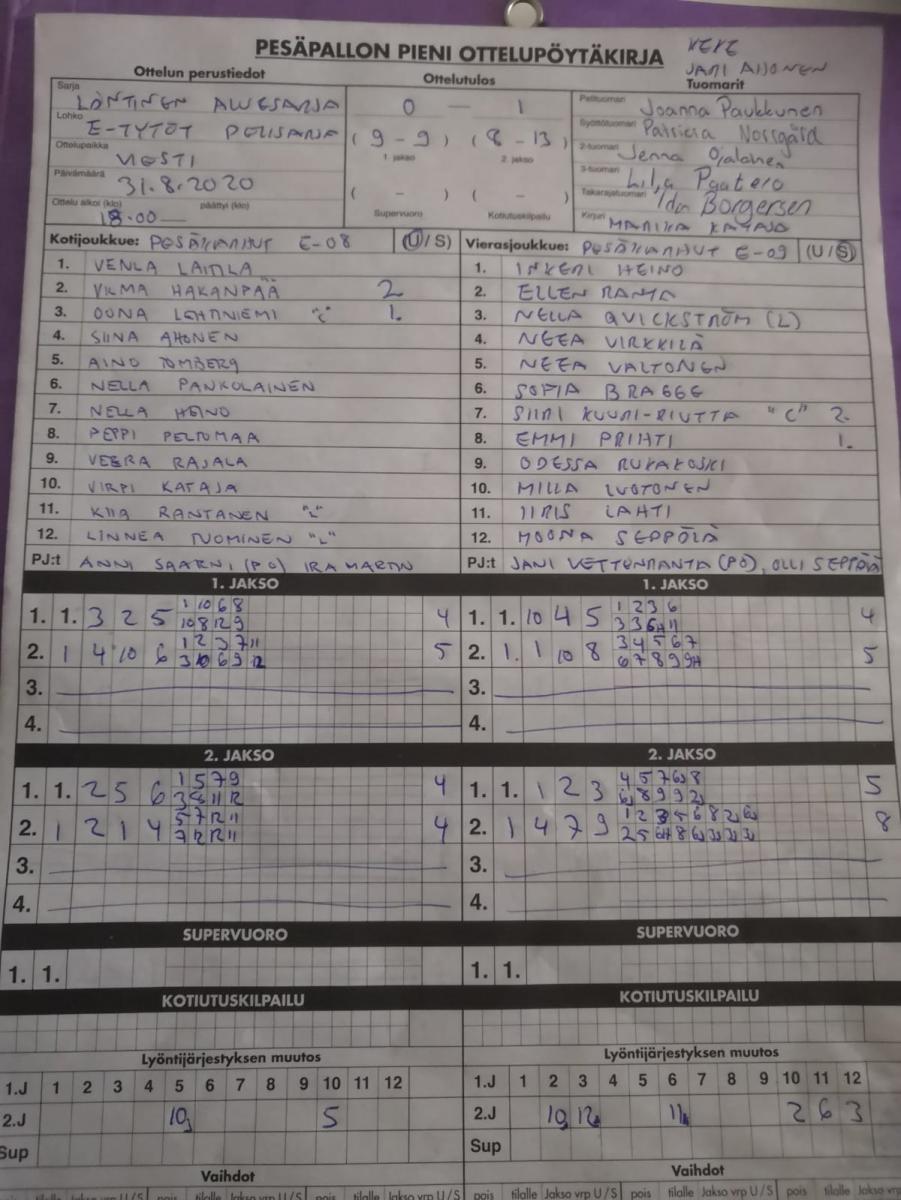 PESÄPALLON PIENI OTTELUPÖYTÄKIRJA
VEKE
JANI AHONEN
Ottelun perustiedot Ottelutulos Tuomarit
Sarja LÄNTINEN ALUESARJA 0 — 1 Pelituomari Joanna Paukkunen
Lohko E-TYTÖT PELISARJA ( 9 - 9 ) ( 8 - 13 ) Syöttötuomari Patricia Norrgård
1. jakso 2. jakso
Ottelupaikka VIESTI 2-tuomari Jenna Ojalainen
Päivämäärä 31.8.2020 ( - ) ( - ) 3-tuomari Lilja Paatero
Ottelu alkoi (klo) päättyi (klo) Supervuoro Kotiutuskilpailu Takarajatuomari Ida Borgersen
18.00 Kirjuri MARIKA KATAJA
Kotijoukkue: PESÄKARHUT E-08 (U/S) Vierasjoukkue: PESÄKARHUT E-09 (U/S)
1. VENLA LAITILA 1. INKERI HEINO
2. VILMA HAKANPÄÄ 2 2. ELLEN RANTA
3. OONA LEHTINIEMI "C" 1. 3. NELLA QVICKSTRÖM (L)
4. SIINA AHONEN 4. NEEA VIRKKILÄ
5. AINO TOMBERG 5. NEEA VALTONEN
6. NELLA PANKOLAINEN 6. SOFIA BRAGGE
7. NELLA HEINO 7. SIIRI KUURI-RIUTTA "C" 2.
8. PEPPI PELTOMAA 8. EMMI PRIHTI 1.
9. VEERA RAJALA 9. ODESSA RUKAKOSKI
10. VIRPI KATAJA 10. MILLA LUOTONEN
11. KIIA RANTANEN "L" 11. IIRIS LAHTI
12. LINNEA TUOMINEN "L" 12. MOONA SEPPÖLÄ
PJ:t ANNI SAARNI (PO) IRA MARTIN PJ:t JANI VETTENRANTA (PO), OLLI SEPPÄLÄ
1. JAKSO 1. JAKSO
1. 1. 3 2 5 1 10 6 8 4 1. 1. 10 4 5 1 2 3 6 4
10 8 12 9 3 3 6H 11
2. 1 4 10 6 1 2 3 7 11 5 2. 1. 1 10 8 3 4 5 6 7 5
3 10 6 9 12 6 7 8 9 9H
3. 3.
4. 4.
2. JAKSO 2. JAKSO
1. 1. 2 5 6 1 5 7 9 4 1. 1. 1 2 3 4 5 7 6J 8 5
11 12 6J 8 9 9 2J
2. 1 2 1 4 5 7 12 11 4 2. 1 4 7 9 1 2 3 5 6 8 2J 6J 8
7 12 12 11 2 5 6H 8 6J 3J 3J 3J
3. 3.
4. 4.
SUPERVUORO SUPERVUORO
1. 1. 1. 1.
KOTIUTUSKILPAILU KOTIUTUSKILPAILU
Lyöntijärjestyksen muutos Lyöntijärjestyksen muutos
1.J 1 2 3 4 5 6 7 8 9 10 11 12 1.J 1 2 3 4 5 6 7 8 9 10 11 12
2.J 10J 5 2.J 10J 12J 11J 2 6 3
Sup Sup
Vaihdot Vaihdot
pois tilalle Jakso vrp U/S pois tilalle Jakso vrp U/S